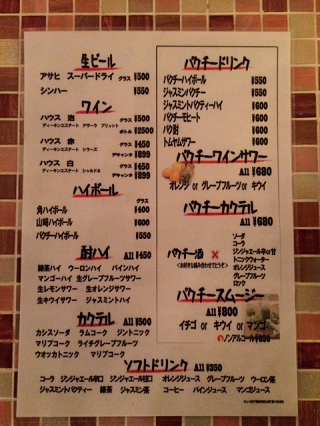 生ビール
アサヒ スーパードライ グラス ¥500
シンハー ¥550
ワイン
ハウス 泡 グラス ¥500
ディーキンエステート アザーラ ブリュット ボトル ¥2500
ハウス 赤 グラス ¥450
ディーキンエステート シラーズ デキャンタ ¥899
ハウス 白 グラス ¥450
ディーキンエステート シャルドネ デキャンタ ¥899
ハイボール
グラス
角ハイボール ¥400
山崎ハイボール ¥600
パクチーハイボール ¥550
酎ハイ All ¥450
緑茶ハイ ウーロンハイ パインハイ
マンゴーハイ 生グレープフルーツサワー
生レモンサワー 生オレンジサワー
生キウイサワー ジャスミンハイ
カクテル All ¥500
カシスソーダ ラムコーク ジントニック
マリブコーク ライチグレープフルーツ
ウオッカトニック マリブコーク
パクチードリンク
パクチーハイボール ¥550
ジャスミンパクチー ¥550
ジャスミントパクティーハイ ¥600
パクチーモヒート ¥600
パク酎 ¥600
トムヤムサワー ¥600
パクチーワインサワー
All ¥680
オレンジ or グレープフルーツ or キウイ
パクチーカクテル
All ¥680
パクチー酒 ×
ソーダ
コーラ
ジンジャエール辛or甘
トニックウォーター
オレンジジュース
グレープフルーツ
ロック
パクチースムージー
All ¥800
イチゴ or キウイ or マンゴ
ノンアルコール ¥650
ソフトドリンク All ¥350
コーラ ジンジャエール辛口 ジンジャエール甘口 オレンジジュース グレープフルーツ ウーロン茶
ジャスミンパクティー 緑茶 ジャスミン茶 コーヒー パインジュース マンゴジュース